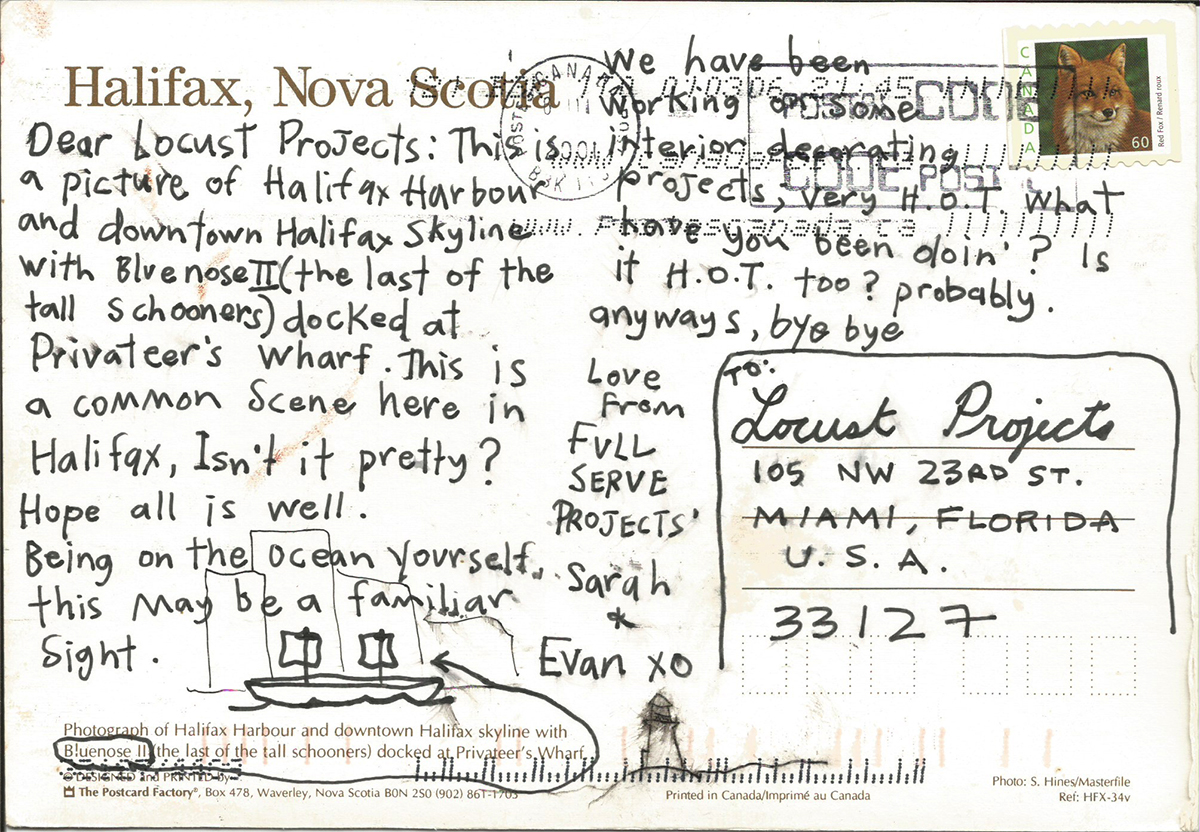 Halifax, Nova Scotia
Dear Locust Projects: This is
a picture of Halifax Harbour
and downtown Halifax Skyline
with Bluenose II (the last of the
tall schooners) docked at
Privateer's Wharf. This is
a common scene here in
Halifax, Isn't it pretty?
Hope all is well.
Being on the ocean yourself,
this may be a familiar
sight.
We have been
working on some
interior decorating
projects, very H.O.T. What
have you been doin'? Is
it H.O.T. too? probably.
anyways, bye bye
Love
from
FULL
SERVE
PROJECTS'
Sarah
&
Evan xo
CANADA
60
Red Fox / Renard roux
POSTAL CODE
CODE POSTAL
TO:
Locust Projects
105 NW 23RD ST.
MIAMI, FLORIDA
U.S.A.
33127
Photograph of Halifax Harbour and downtown Halifax skyline with
Bluenose II (the last of the tall schooners) docked at Privateer's Wharf.
© DESIGNED and PRINTED by
The Postcard Factory®, Box 478, Waverley, Nova Scotia B0N 2S0 (902) 861-1703
Printed in Canada/Imprimé au Canada
Photo: S. Hines/Masterfile
Ref: HFX-34v